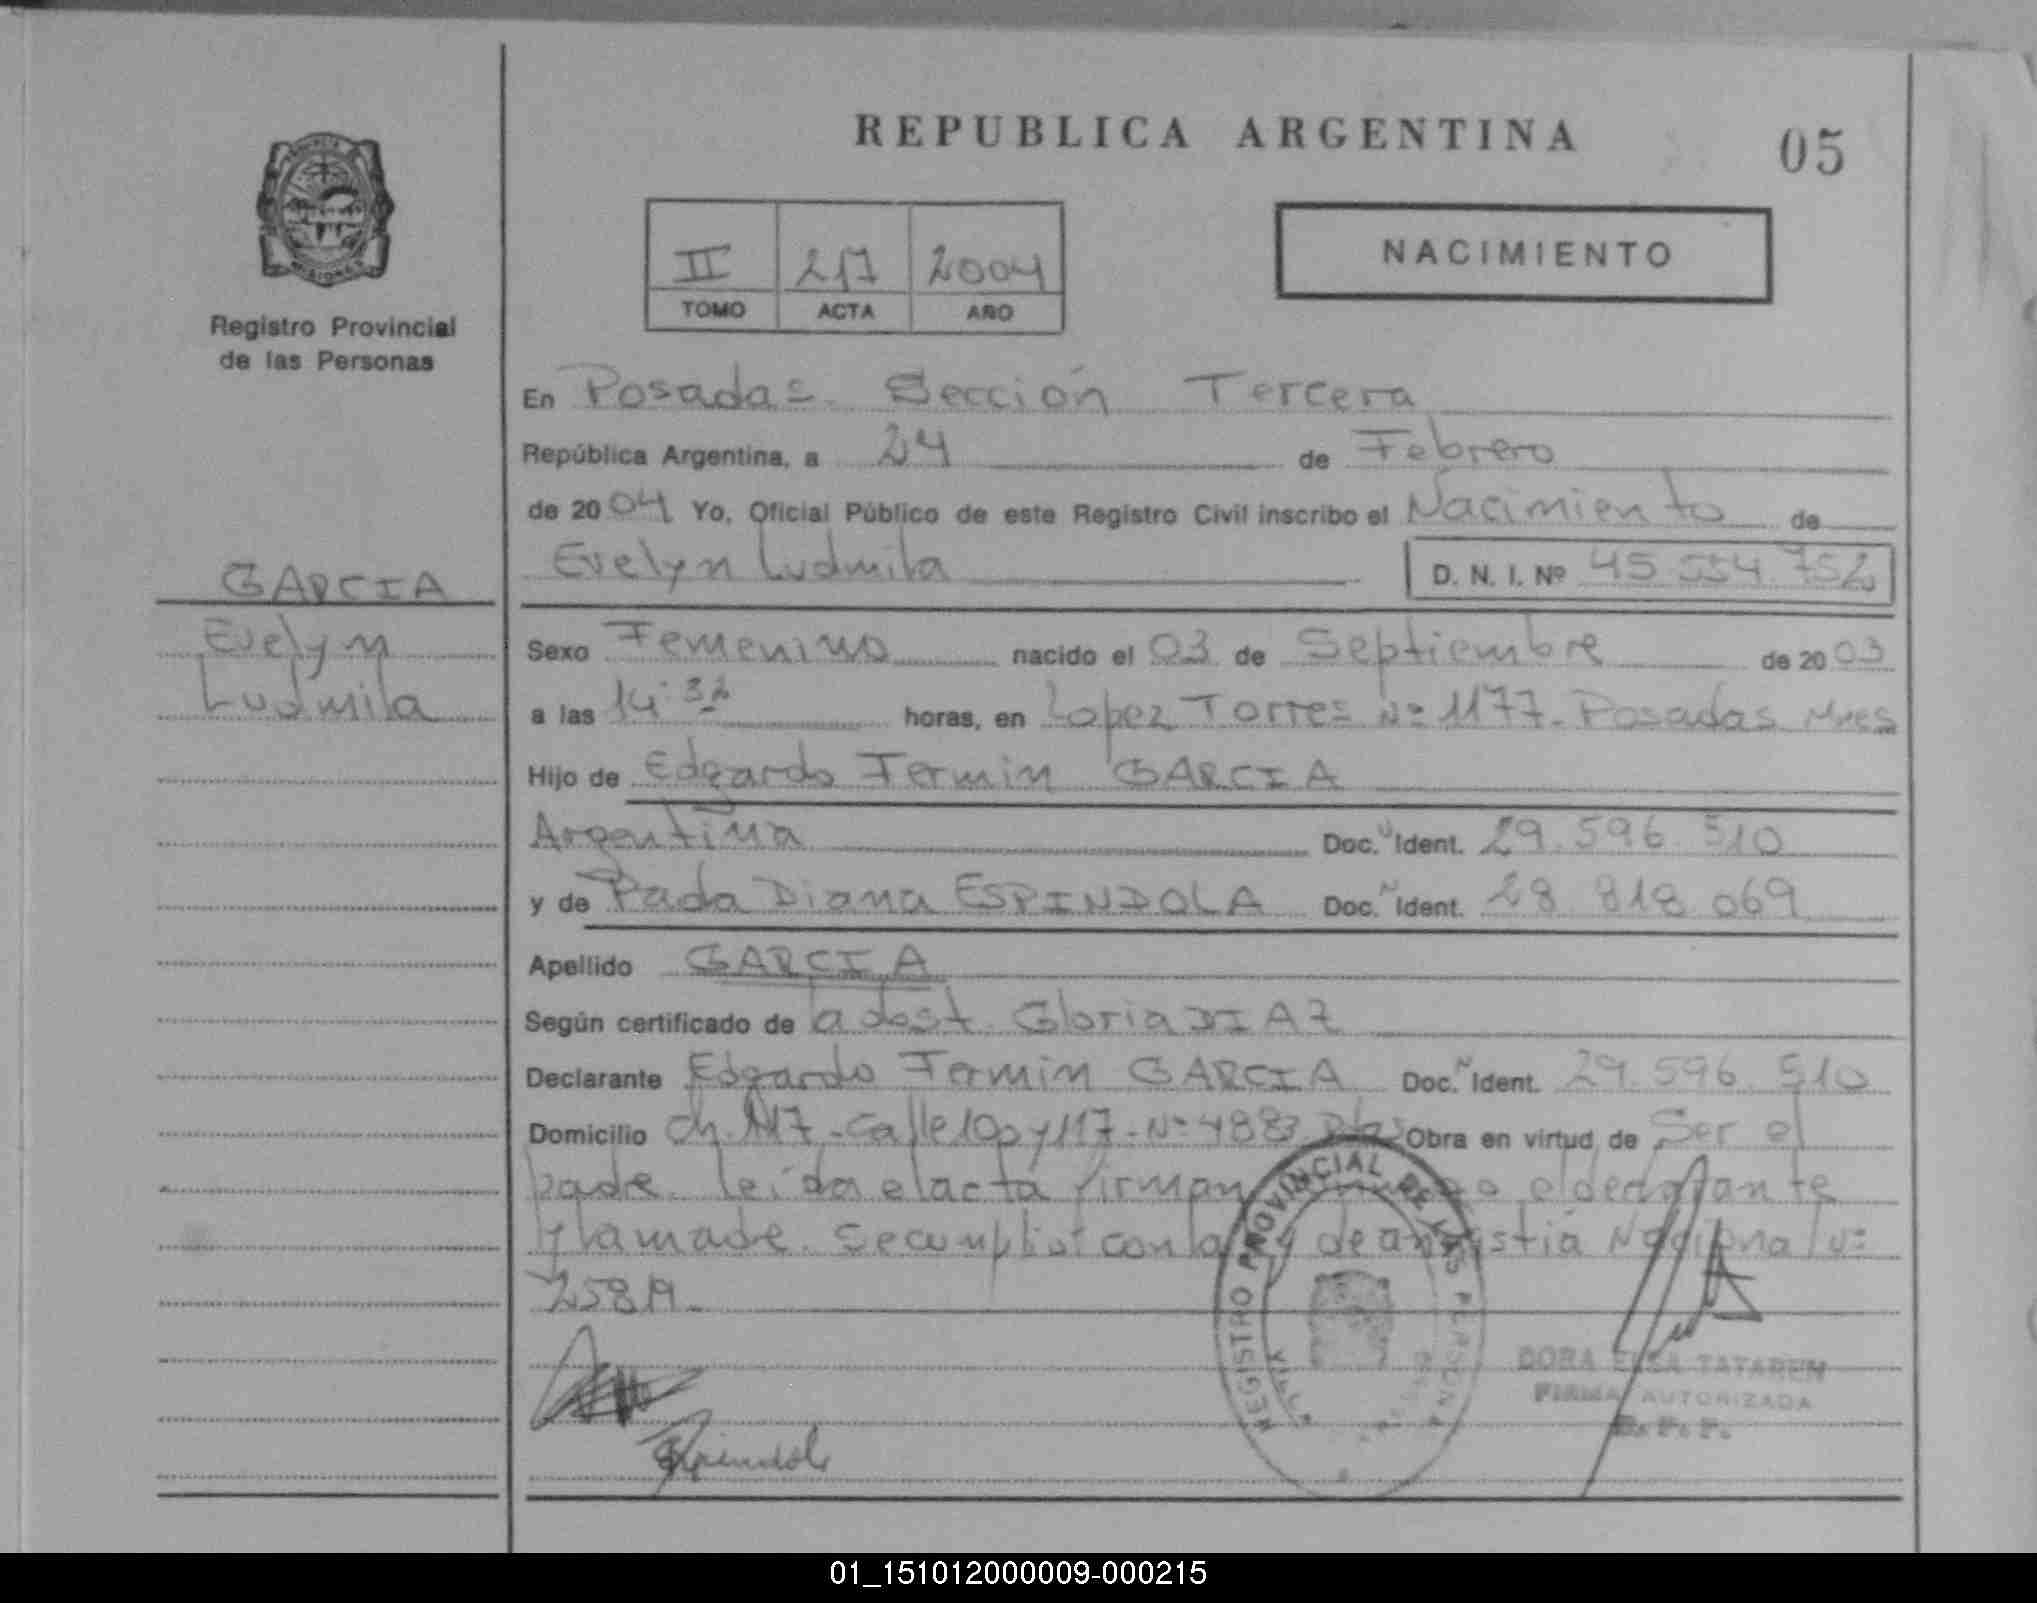 REPUBLICA ARGENTINA
05
II 217 2004
TOMO ACTA AÑO
NACIMIENTO
PROVINCIA
MISIONES
Registro Provincial
de las Personas
En Posadas. Sección Tercera
República Argentina, a 24 de Febrero
de 2004 Yo, Oficial Público de este Registro Civil inscribo el Nacimiento de
Evelyn Ludmila D. N. I. Nº 45.554.752
GARCIA
Evelyn
Ludmila
Sexo Femenino nacido el 03 de Septiembre de 2003
a las 14:32 horas, en Lopez Torres Nº 1177. Posadas Mnes
Hijo de Edgardo Fermin GARCIA
Argentina Doc. Ident. 29.596.510
y de Diana ESPINDOLA Doc. Ident. 28.818.069
Apellido GARCIA
Según certificado de la obst. Gloria DIAZ
Declarante Edgardo Fermin GARCIA Doc. Ident. 29.596.510
Domicilio Ch. 117 - Calle y 117 - Nº 4883 Obra en virtud de Ser el
padre. leida el acta firman el declarante
y la madre. Se cumplio con la ley de amnistia Nacional Nº
25819.
REGISTRO PROVINCIAL DE LAS PERSONAS
DORA ELSA TATAREN
FIRMA AUTORIZADA
R. P. P.
Espindola
01_151012000009-000215